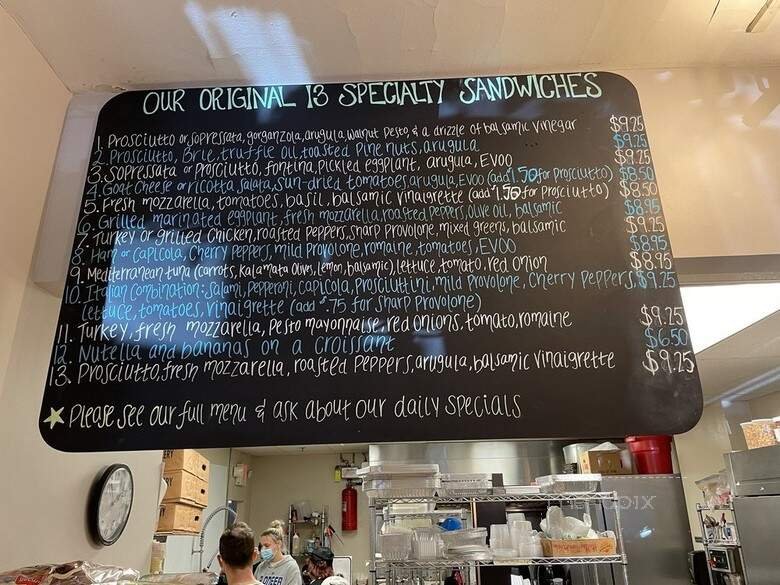 OUR ORIGINAL 13 SPECIALTY SANDWICHES
1. Prosciutto or sopressata, gorganzola, arugula, walnut pesto, & a drizzle of balsamic vinegar $9.25
2. Prosciutto, Brie, truffle oil, toasted pine nuts, arugula $9.25
3. Sopressata or prosciutto, fontina, pickled eggplant, arugula, EVOO $9.25
4. Goat cheese or ricotta salata, sun-dried tomatoes, arugula, EVOO (add $1.50 for prosciutto) $8.50
5. Fresh mozzarella, tomatoes, basil, balsamic vinaigrette (add $1.50 for prosciutto) $8.50
6. Grilled marinated eggplant, fresh mozzarella, roasted peppers, olive oil, balsamic $8.95
7. Turkey or grilled chicken, roasted peppers, sharp provolone, mixed greens, balsamic $9.25
8. Ham or capicola, cherry peppers, mild provolone, romaine, tomatoes, EVOO $8.95
9. Mediterranean tuna (carrots, kalamata olives, lemon, balsamic), lettuce, tomato, red onion $8.95
10. Italian combination: salami, pepperoni, capicola, prosciuttini, mild provolone, cherry peppers, $9.25
lettuce, tomatoes, vinaigrette (add $.75 for sharp provolone)
11. Turkey, fresh mozzarella, pesto mayonnaise, red onions, tomato, romaine $9.25
12. Nutella and bananas on a croissant $6.50
13. Prosciutto, fresh mozzarella, roasted peppers, arugula, balsamic vinaigrette $9.25
Please see our full menu & ask about our daily specials